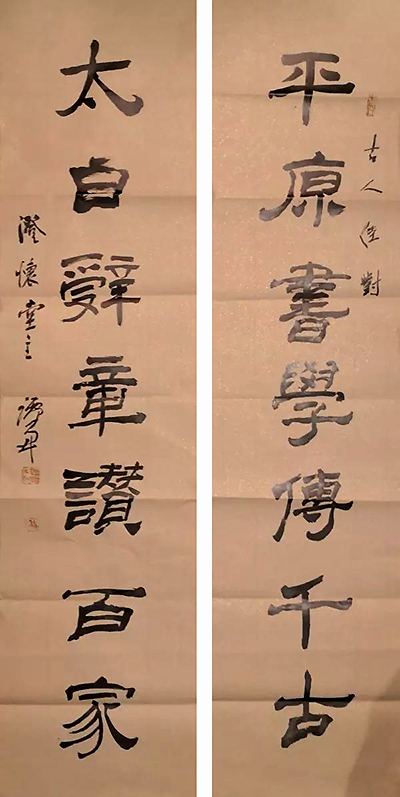 平原書學傳千古
古人佳對
太白辭章讚百家
澄懷堂主